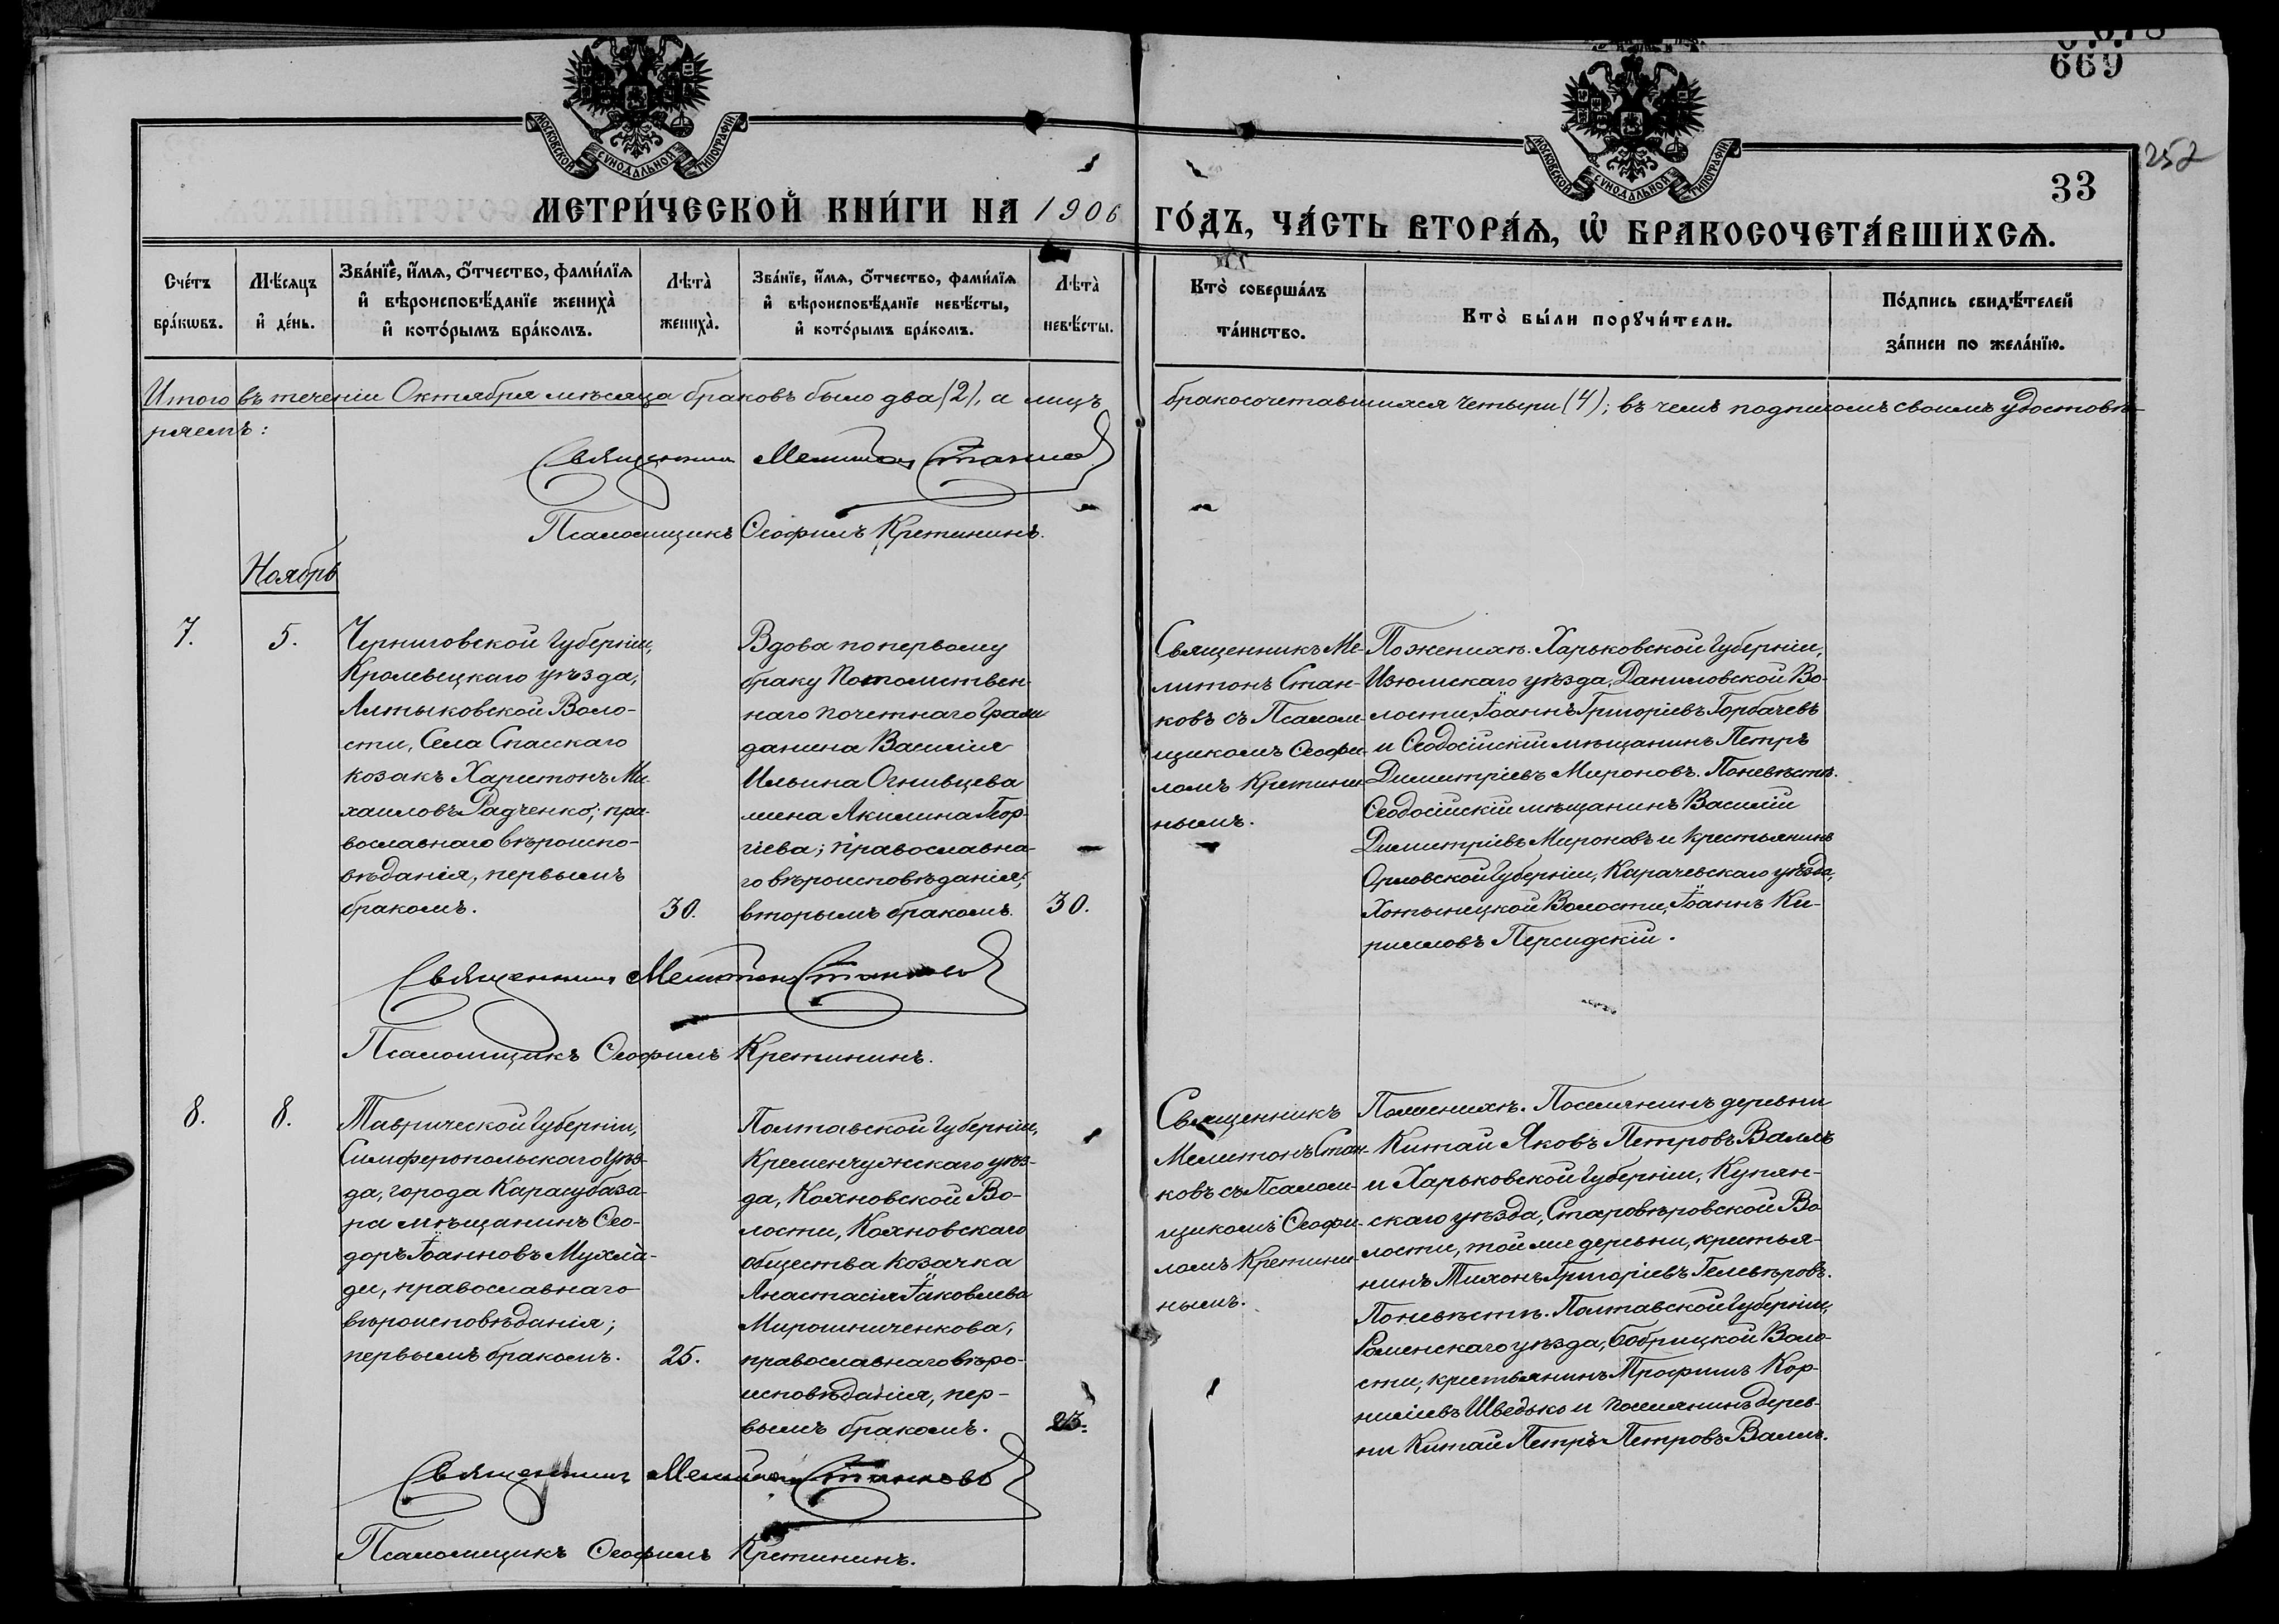 669
252
33
МОСКОВСКОЙ СѴНОДАЛЬНОЙ ТИПОГРАФІИ
МОСКОВСКОЙ СѴНОДАЛЬНОЙ ТИПОГРАФІИ
МЕТРИ́ЧЕСКОЙ КНИ́ГИ НА 1906 ГО́ДЪ, ЧА́СТЬ ВТОРА́Ѧ, Ѡ БРАКОСОЧЕТА́ВШИХСѦ.
Сче́тъ бра́кѡвъ.
Мѣ́сяцъ и де́нь.
Зва́нїе, и́мѧ, о́тчество, фами́лїѧ и вѣроисповѣ́данїе жениха̀ и кото́рымъ бра́комъ.
Лѣта̀ жениха̀.
Зва́нїе, и́мѧ, о́тчество, фами́лїѧ и вѣроисповѣ́данїе невѣ́сты, и кото́рымъ бра́комъ.
Лѣта̀ невѣ́сты.
Кто̀ соверша́лъ та́инство.
Кто̀ бы́ли порꙋчи́тели.
По́дпись свидѣ́телей за́писи по жела́нїю.
Итого въ теченіи Октября мѣсяца браковъ было два (2), а лицъ бракосочетавшихся четыри (4); въ чемъ подписомъ своимъ удостовѣ-
ряемъ:
Священникъ Мелитонъ Станковъ
Псаломщикъ Ѳеофилъ Кретининъ.
Ноябрь
7.
5.
Черниговской Губерніи,
Кролевецкаго уѣзда,
Алтыковской Воло-
сти, Села Спасскаго
козакъ Харитонъ Ми-
хаиловъ Радченко; пра-
вославнаго вѣроиспо-
вѣданія, первымъ
бракомъ.
30.
Вдова по первому
браку Потомствен-
наго Почетнаго Граж
данина Василія
Ильина Огнивцева
жена Акилина Геор-
гіева; православна-
го вѣроисповѣданія;
вторымъ бракомъ.
30.
Священникъ Ме-
литонъ Стан-
ковъ съ Псалом-
щикомъ Ѳеофи-
ломъ Кретини-
нымъ.
По женихѣ. Харьковской Губерніи,
Изюмскаго уѣзда, Даниловской Во-
лости, Іоаннъ Григоріевъ Горбачевъ
и Ѳеодосійскій мѣщанинъ Петръ
Димитріевъ Мироновъ. По невѣстѣ.
Ѳеодосійскій мѣщанинъ Василій
Димитріевъ Мироновъ и крестьянинъ
Орловской Губерніи, Карачевскаго уѣзда,
Хотынецкой Волости, Іоаннъ Ки-
рилловъ Персидскій.
Священникъ Мелитонъ Станковъ
Псаломщикъ Ѳеофилъ Кретининъ.
8.
8.
Таврической Губерніи,
Симферопольскаго Уѣз-
да, города Карасубаза-
ра мѣщанинъ Ѳео-
доръ Іоанновъ Мухла-
ди, православнаго
вѣроисповѣданія;
первымъ бракомъ.
25.
Полтавской Губерніи,
Кременчужскаго уѣз-
да, Кохновской Во-
лости, Кохновскаго
общества козачка
Анастасія Іаковлева
Мирошниченкова,
православнаго вѣро-
исповѣданія, пер-
вымъ бракомъ.
23.
Священникъ
Мелитонъ Стан-
ковъ съ Псалом-
щикомъ Ѳеофи-
ломъ Кретини-
нымъ.
По женихѣ. Поселянинъ деревни
Китай Яковъ Петровъ Валлъ
и Харьковской Губерніи, Купян-
скаго уѣзда, Старовѣровской Во
лости, той же деревни, крестья-
нинъ Тихонъ Григоріевъ Гелевѣровъ.
По невѣстѣ. Полтавской Губерніи,
Роменскаго уѣзда, Бобрицкой Воло-
сти, крестьянинъ Трофимъ Кор-
ниліевъ Шведько и поселянинъ дерев-
ни Китай Петръ Петровъ Валлъ.
Священникъ Мелитонъ Станковъ
Псаломщикъ Ѳеофилъ Кретининъ.